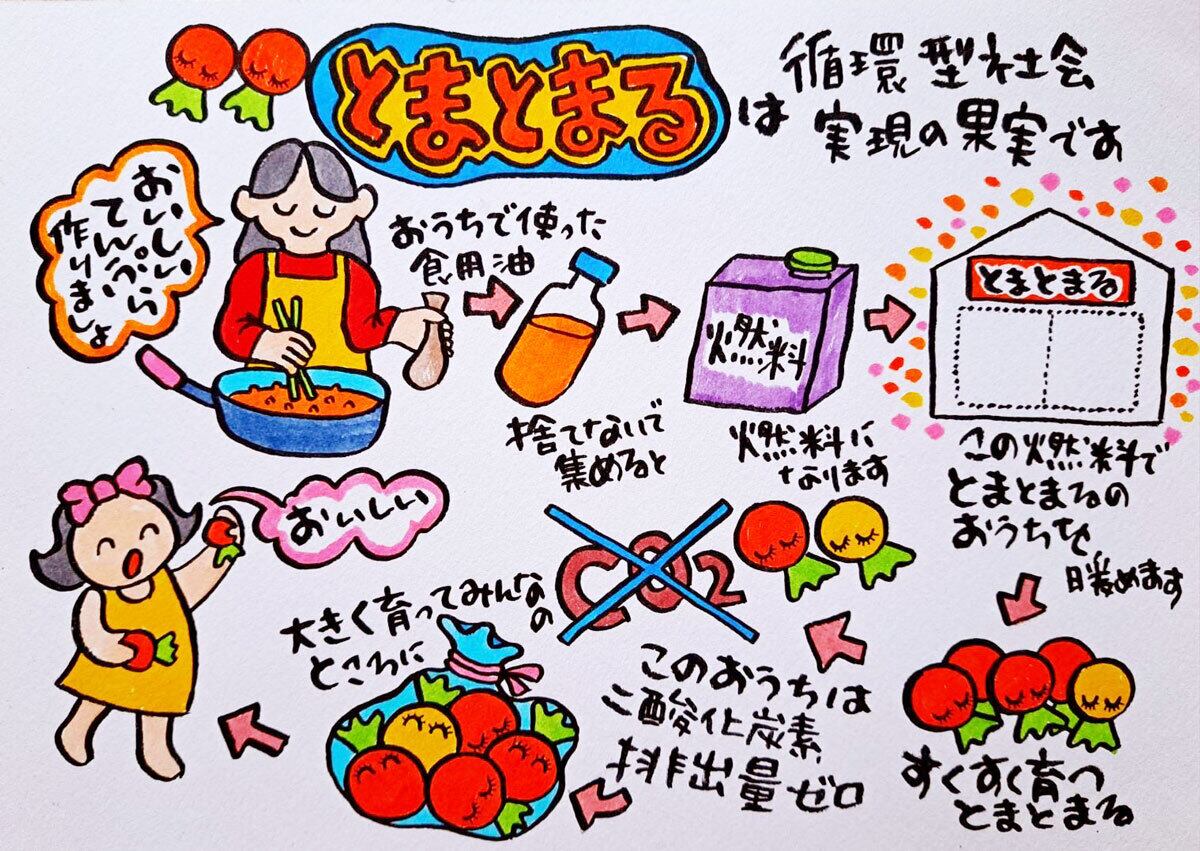 とまとまる
は
循環型社会
実現の果実です
おいしい
てんぷら
作りましょ
おうちで使った
食用油
捨てないで
集めると
燃料
燃料に
なります
とまとまる
この燃料で
とまとまるの
おうちを
暖めます
すくすく育つ
とまとまる
CO2
このおうちは
二酸化炭素
排出量ゼロ
大きく育ってみんなの
ところに
おいしい